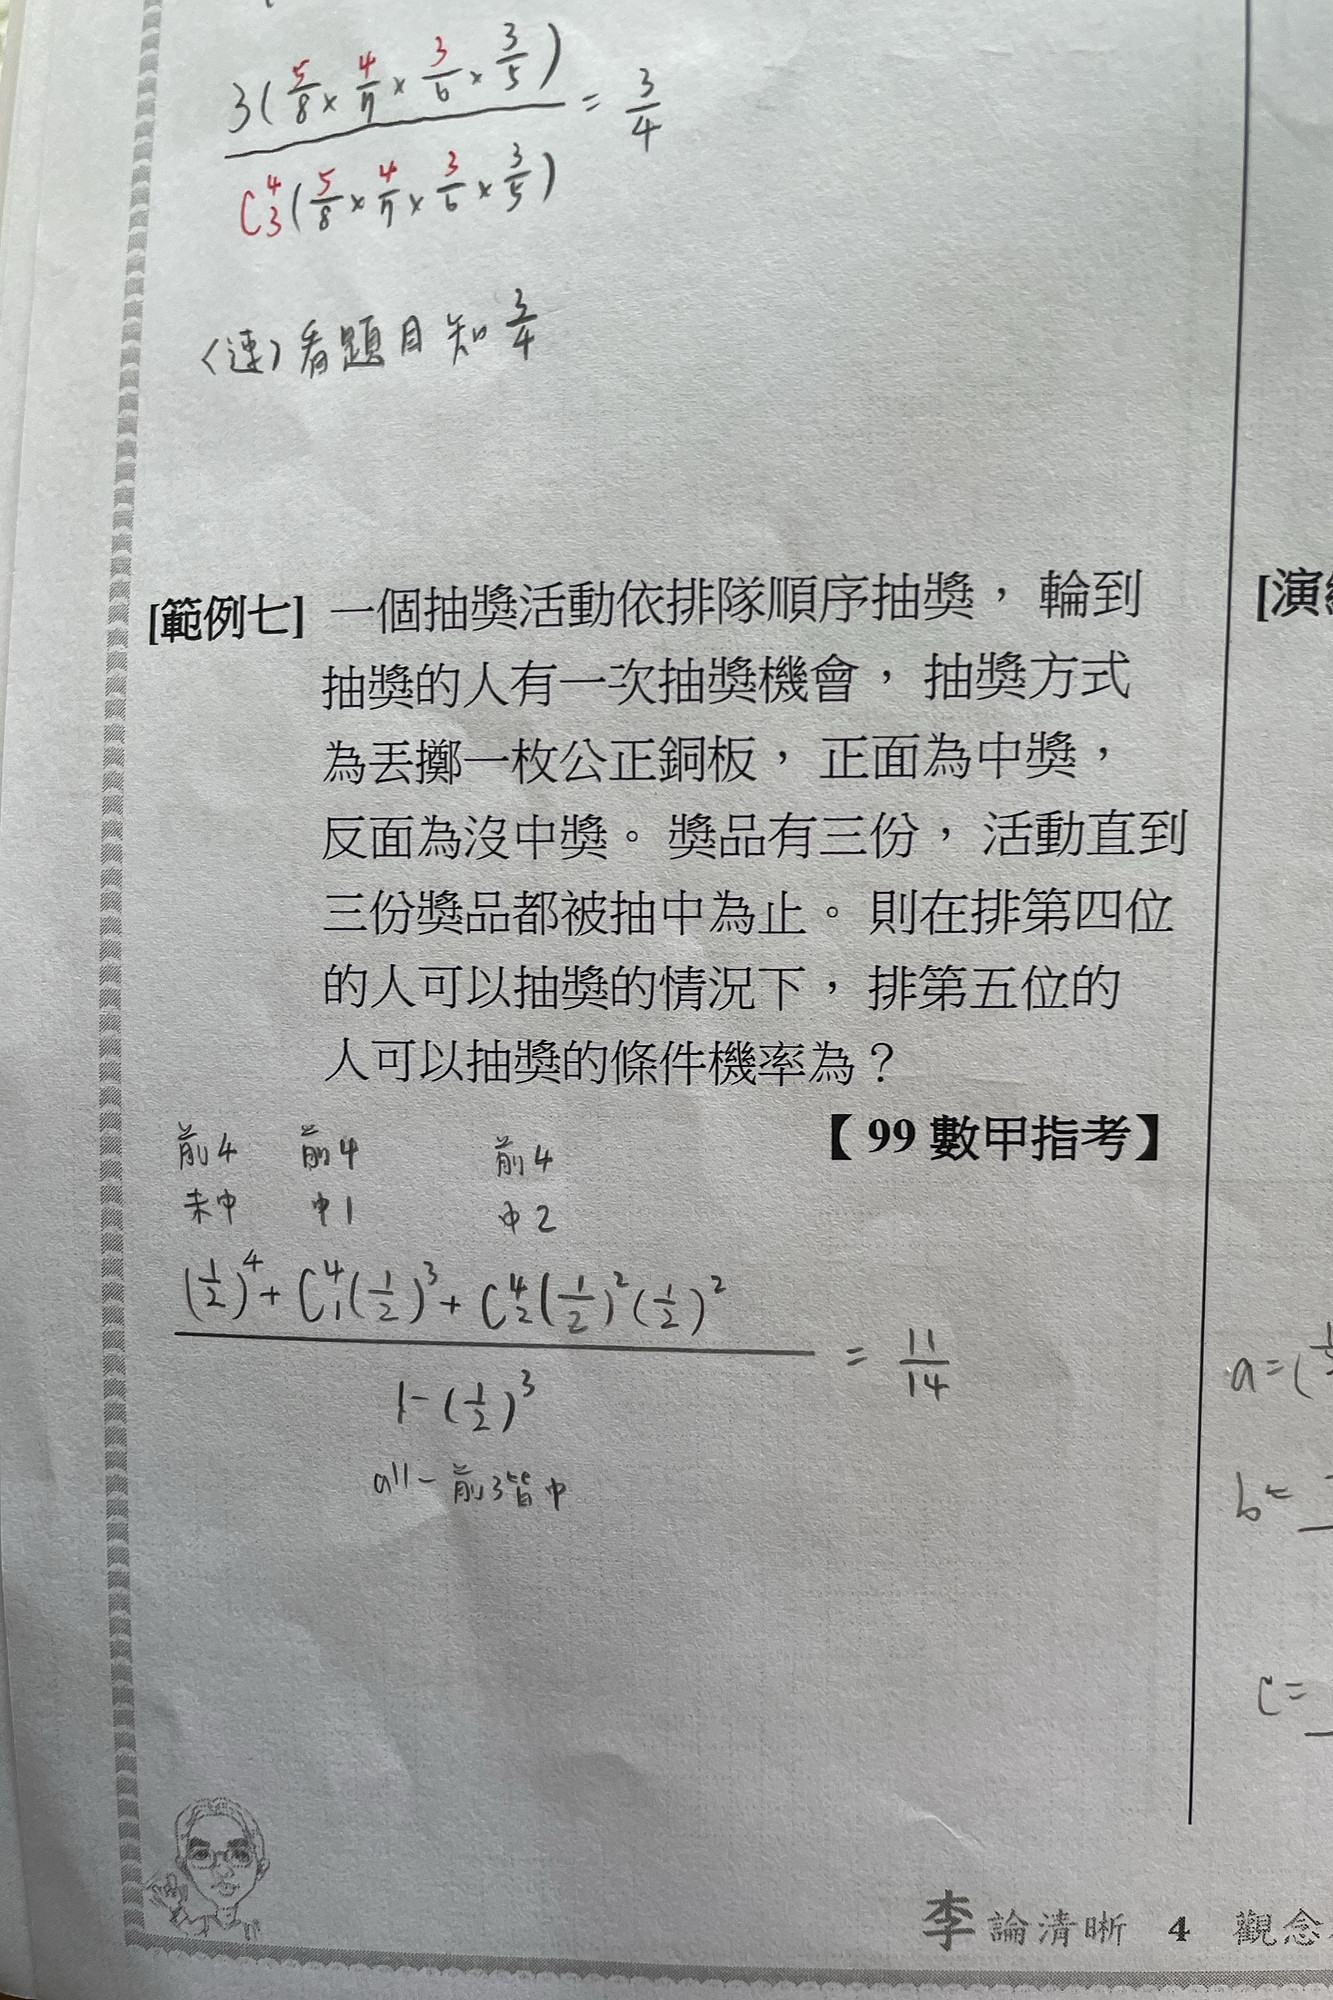 3(5/8 × 4/7 × 3/6 × 3/5) / C⁴₃(5/8 × 4/7 × 3/6 × 3/5) = 3/4
〈速〉看題目知 3/4
[範例七] 一個抽獎活動依排隊順序抽獎， 輪到
抽獎的人有一次抽獎機會， 抽獎方式
為丟擲一枚公正銅板， 正面為中獎，
反面為沒中獎。 獎品有三份， 活動直到
三份獎品都被抽中為止。 則在排第四位
的人可以抽獎的情況下， 排第五位的
人可以抽獎的條件機率為？
【 99 數甲指考】
前4 前4 前4
未中 中1 中2
(1/2)⁴ + C⁴₁(1/2)³ + C⁴₂(1/2)²(1/2)² / 1-(1/2)³ = 11/14
all - 前3皆中
[演
a=(
b=
c=
李 論清晰 4 觀念